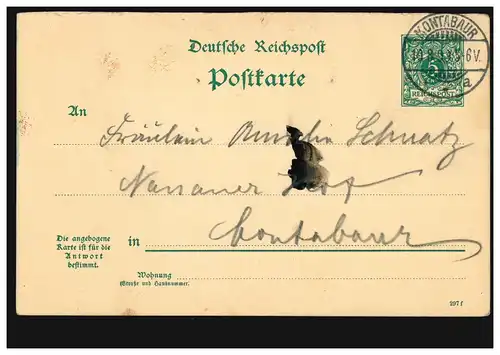 MONTABAUR
Deutsche Reichspost
5
REICHSPOST
Postkarte
An
Fräulein Amelie Schnatz
Nassauer Hof
Die angebogene
Karte ist für die
Antwort
bestimmt.
in Montabaur
Wohnung
(Straße und Hausnummer)
297 f